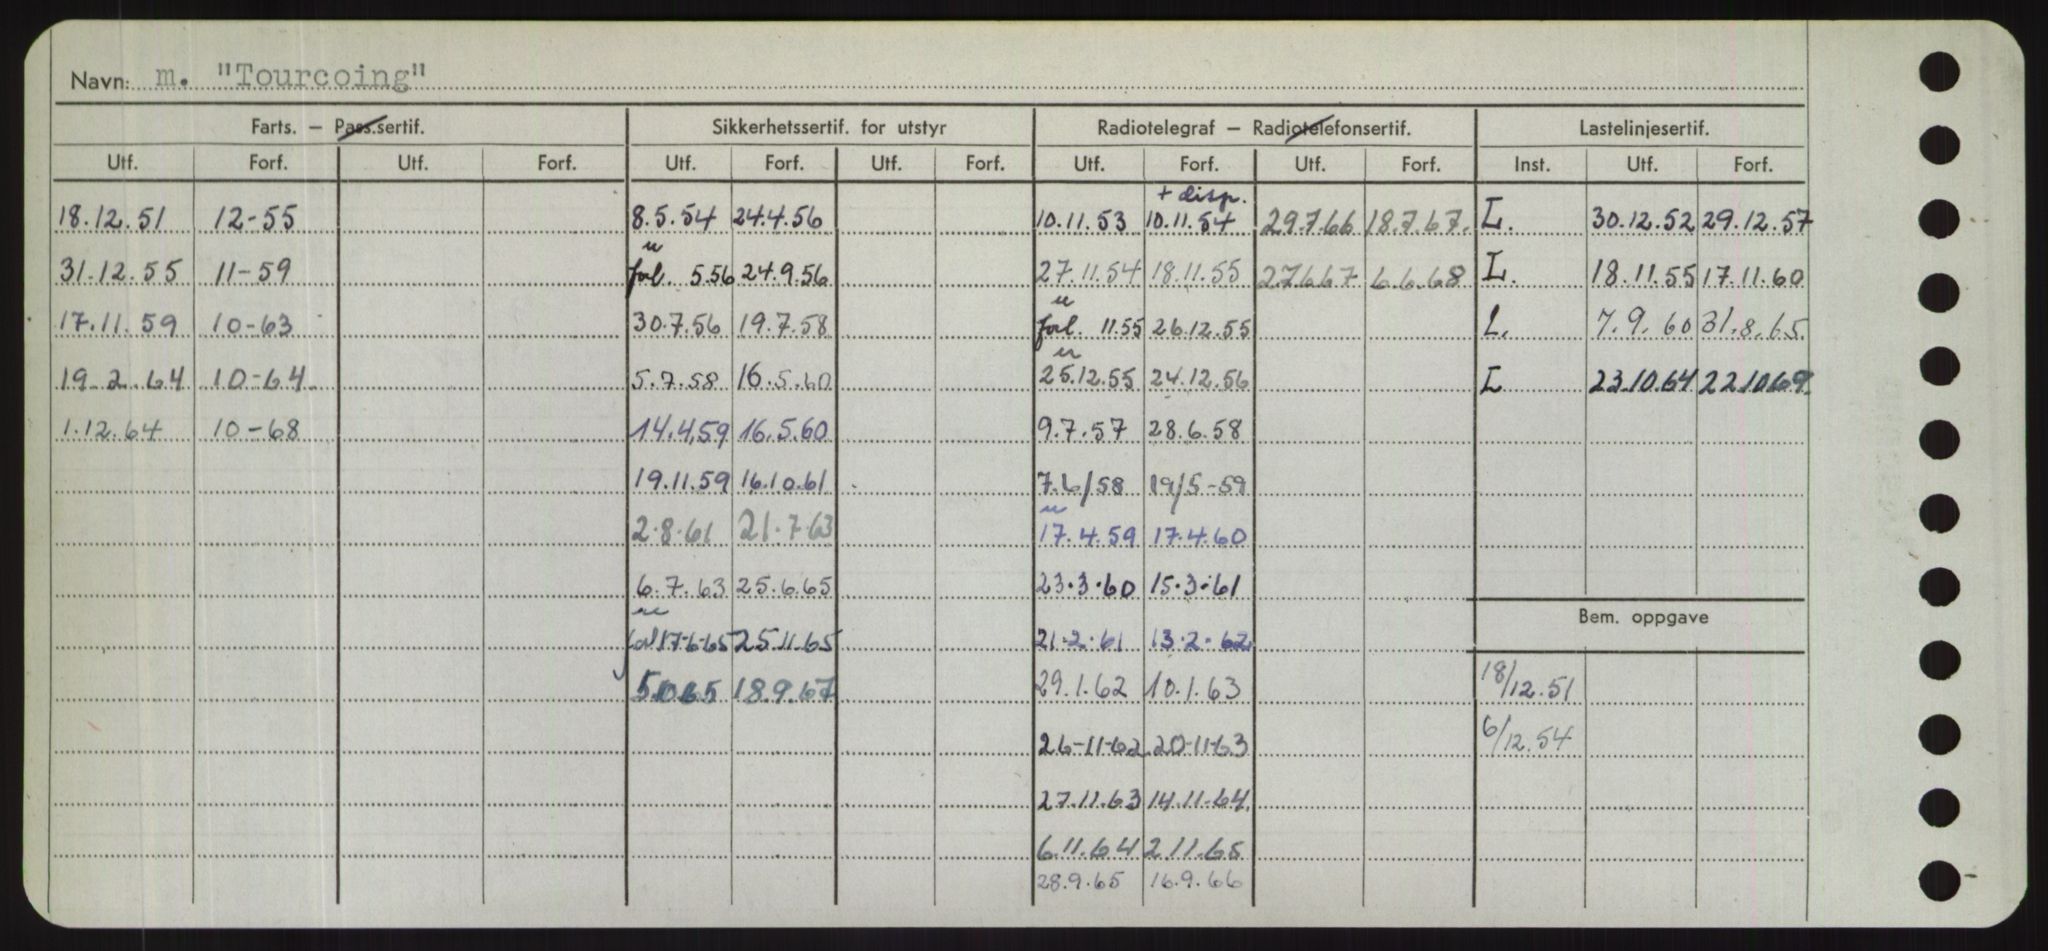 Navn: m. "Tourcoing"
Farts. — Pass.sertif. Sikkerhetssertif. for utstyr Radiotelegraf — Radiotelefonsertif. Lastelinjesertif.
Utf. Forf. Utf. Forf. Utf. Forf. Utf. Forf. Utf. Forf. Utf. Forf. Inst. Utf. Forf.
+ disp.
18.12.51 12-55 8.5.54 24.4.56 10.11.53 10.11.54 29.7.66 18.7.67. L. 30.12.52 29.12.57
31.12.55 11-59 forl. 5.56 24.9.56 27.11.54 18.11.55 27667 6.6.68 L. 18.11.55 17.11.60
17.11.59 10-63 30.7.56 19.7.58 forl. 11.55 26.12.55 L. 7.9.60 31.8.65.
19.2.64 10-64. 5.7.58 16.5.60 25.12.55 24.12.56 L 23.10.64 22.10.69.
1.12.64 10-68 14.4.59 16.5.60 9.7.57 28.6.58
19.11.59 16.10.61 7.6/58 19/5-59
2.8.61 21.7.63 17.4.59 17.4.60
6.7.63 25.6.65 23.3.60 15.3.61
Bem. oppgave
17-6-65 25.11.65 21.2.61 13.2.62
5.10.65 18.9.67 29.1.62 10.1.63 18/12.51
26-11-62 20-11-63 6/12.54
27.11.63 14.11-64.
6.11.64 2.11.65
28.9.65 16.9.66